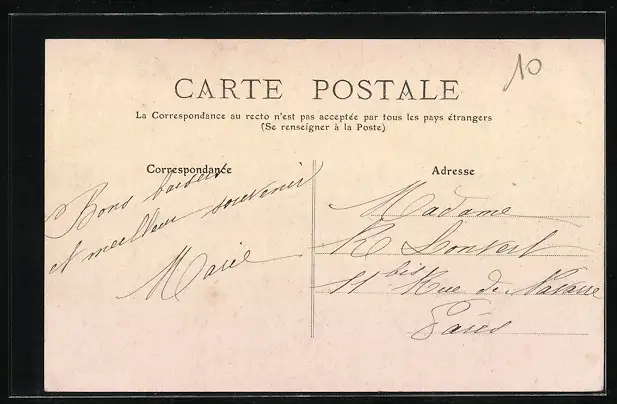 10
CARTE POSTALE
La Correspondance au recto n'est pas acceptée par tous les pays étrangers
(Se renseigner à la Poste)
Correspondance
Bons baisers
et meilleur souvenir
Marie
Adresse
Madame
R Lonvert
11 bis Rue de Navarre
Paris